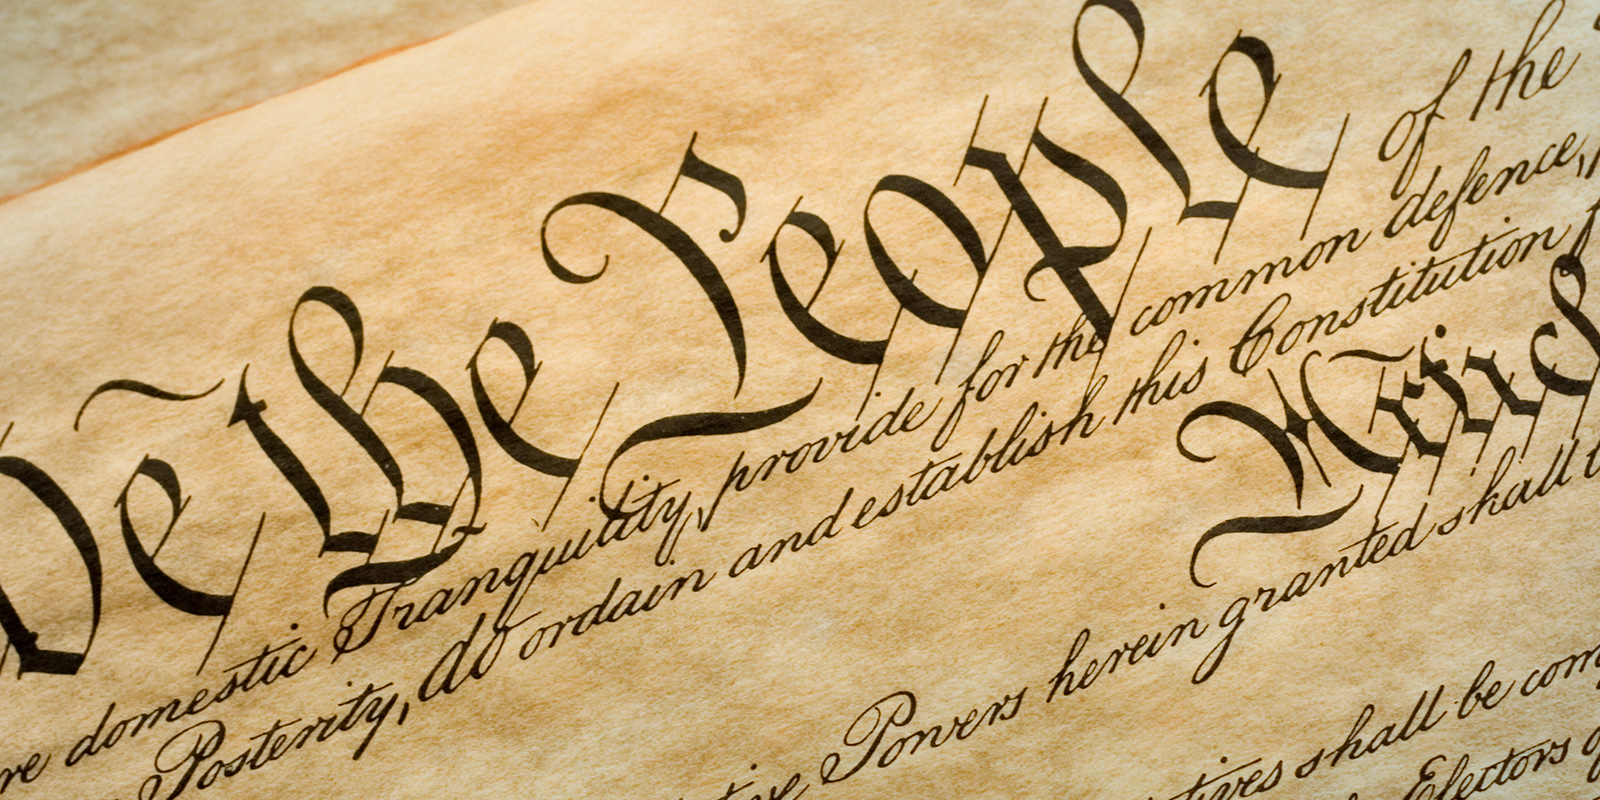 We the People of the
domestic Tranquility, provide for the common defence,
Posterity, do ordain and establish this Constitution
Powers herein granted shall
shall be
Electors